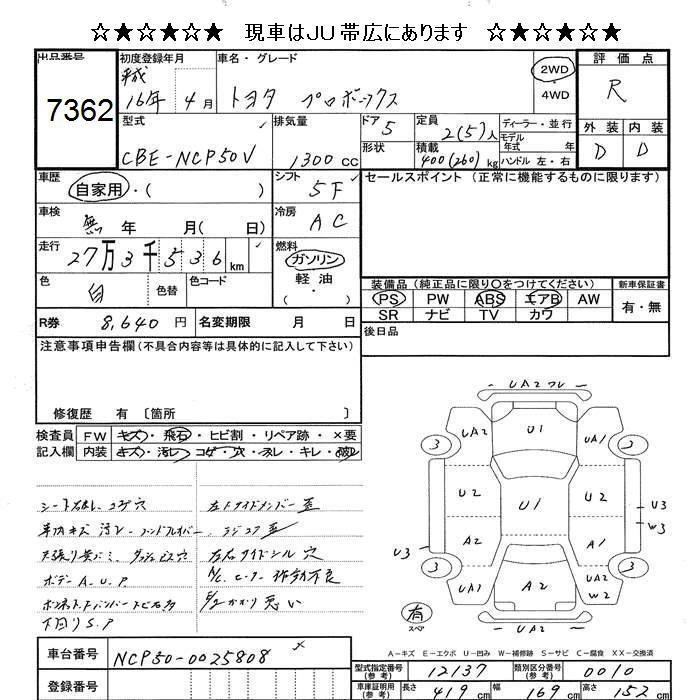 ☆★☆★☆★ 現車はJU帯広にあります ☆★☆★☆★
出品番号 初度登録年月 車名・グレード 評価点
7362 平成 16年 4月 トヨタ プロボックス 2WD ・ 4WD R
型式 排気量 ドア 定員 ディーラー・並行 外装 内装
CBE-NCP50V 1300cc 5 2(5)人 モデル年式 年 D D
形状 積載 400(260)kg ハンドル 左・右
車歴 自家用・( ) シフト 5F セールスポイント (正常に機能するものに限ります)
車検 無 年 月( 日) 冷房 AC
走行 27万3千536km 燃料 ガソリン 軽油
色 白 色替 色コード ・( )
装備品 (純正品に限り○をつけてください) 新車保証書
PS PW ABS エアB AW 有・無
SR ナビ TV カワ
R券 8,640円 名変期限 月 日 後日品
注意事項申告欄(不具合内容等は具体的に記入して下さい)
修復歴 有 〔箇所 〕
検査員 FW キズ・飛石・ヒビ割・リペア跡・×要
記入欄 内装 キズ・汚レ・コゲ・穴・スレ・キレ・破レ
UA2
UA2 U1 UA1
3 3
U2 U1 U2
U3
W3
A2 A1
U3
3 3
UA1 A2 UA2
W2
UA2
コゲ穴 左サイドメンバー
車内キズ 汚レ
左右サイドシル 穴
ボデー A.U.P A/C
悪い
下回り S.P
有
スペア
A-キズ E-エクボ U-凹み W-補修跡 S-サビ C-腐食 XX-交換済
車台番号 NCP50-0025808
登録番号
型式指定番号(参考) 12137 類別区分番号(参考) 0010
車庫証明用(参考) 長さ 419cm 幅 169cm 高さ 152cm